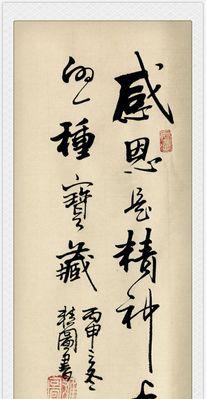 感恩是精神上
的一種寶藏
丙申之冬
書